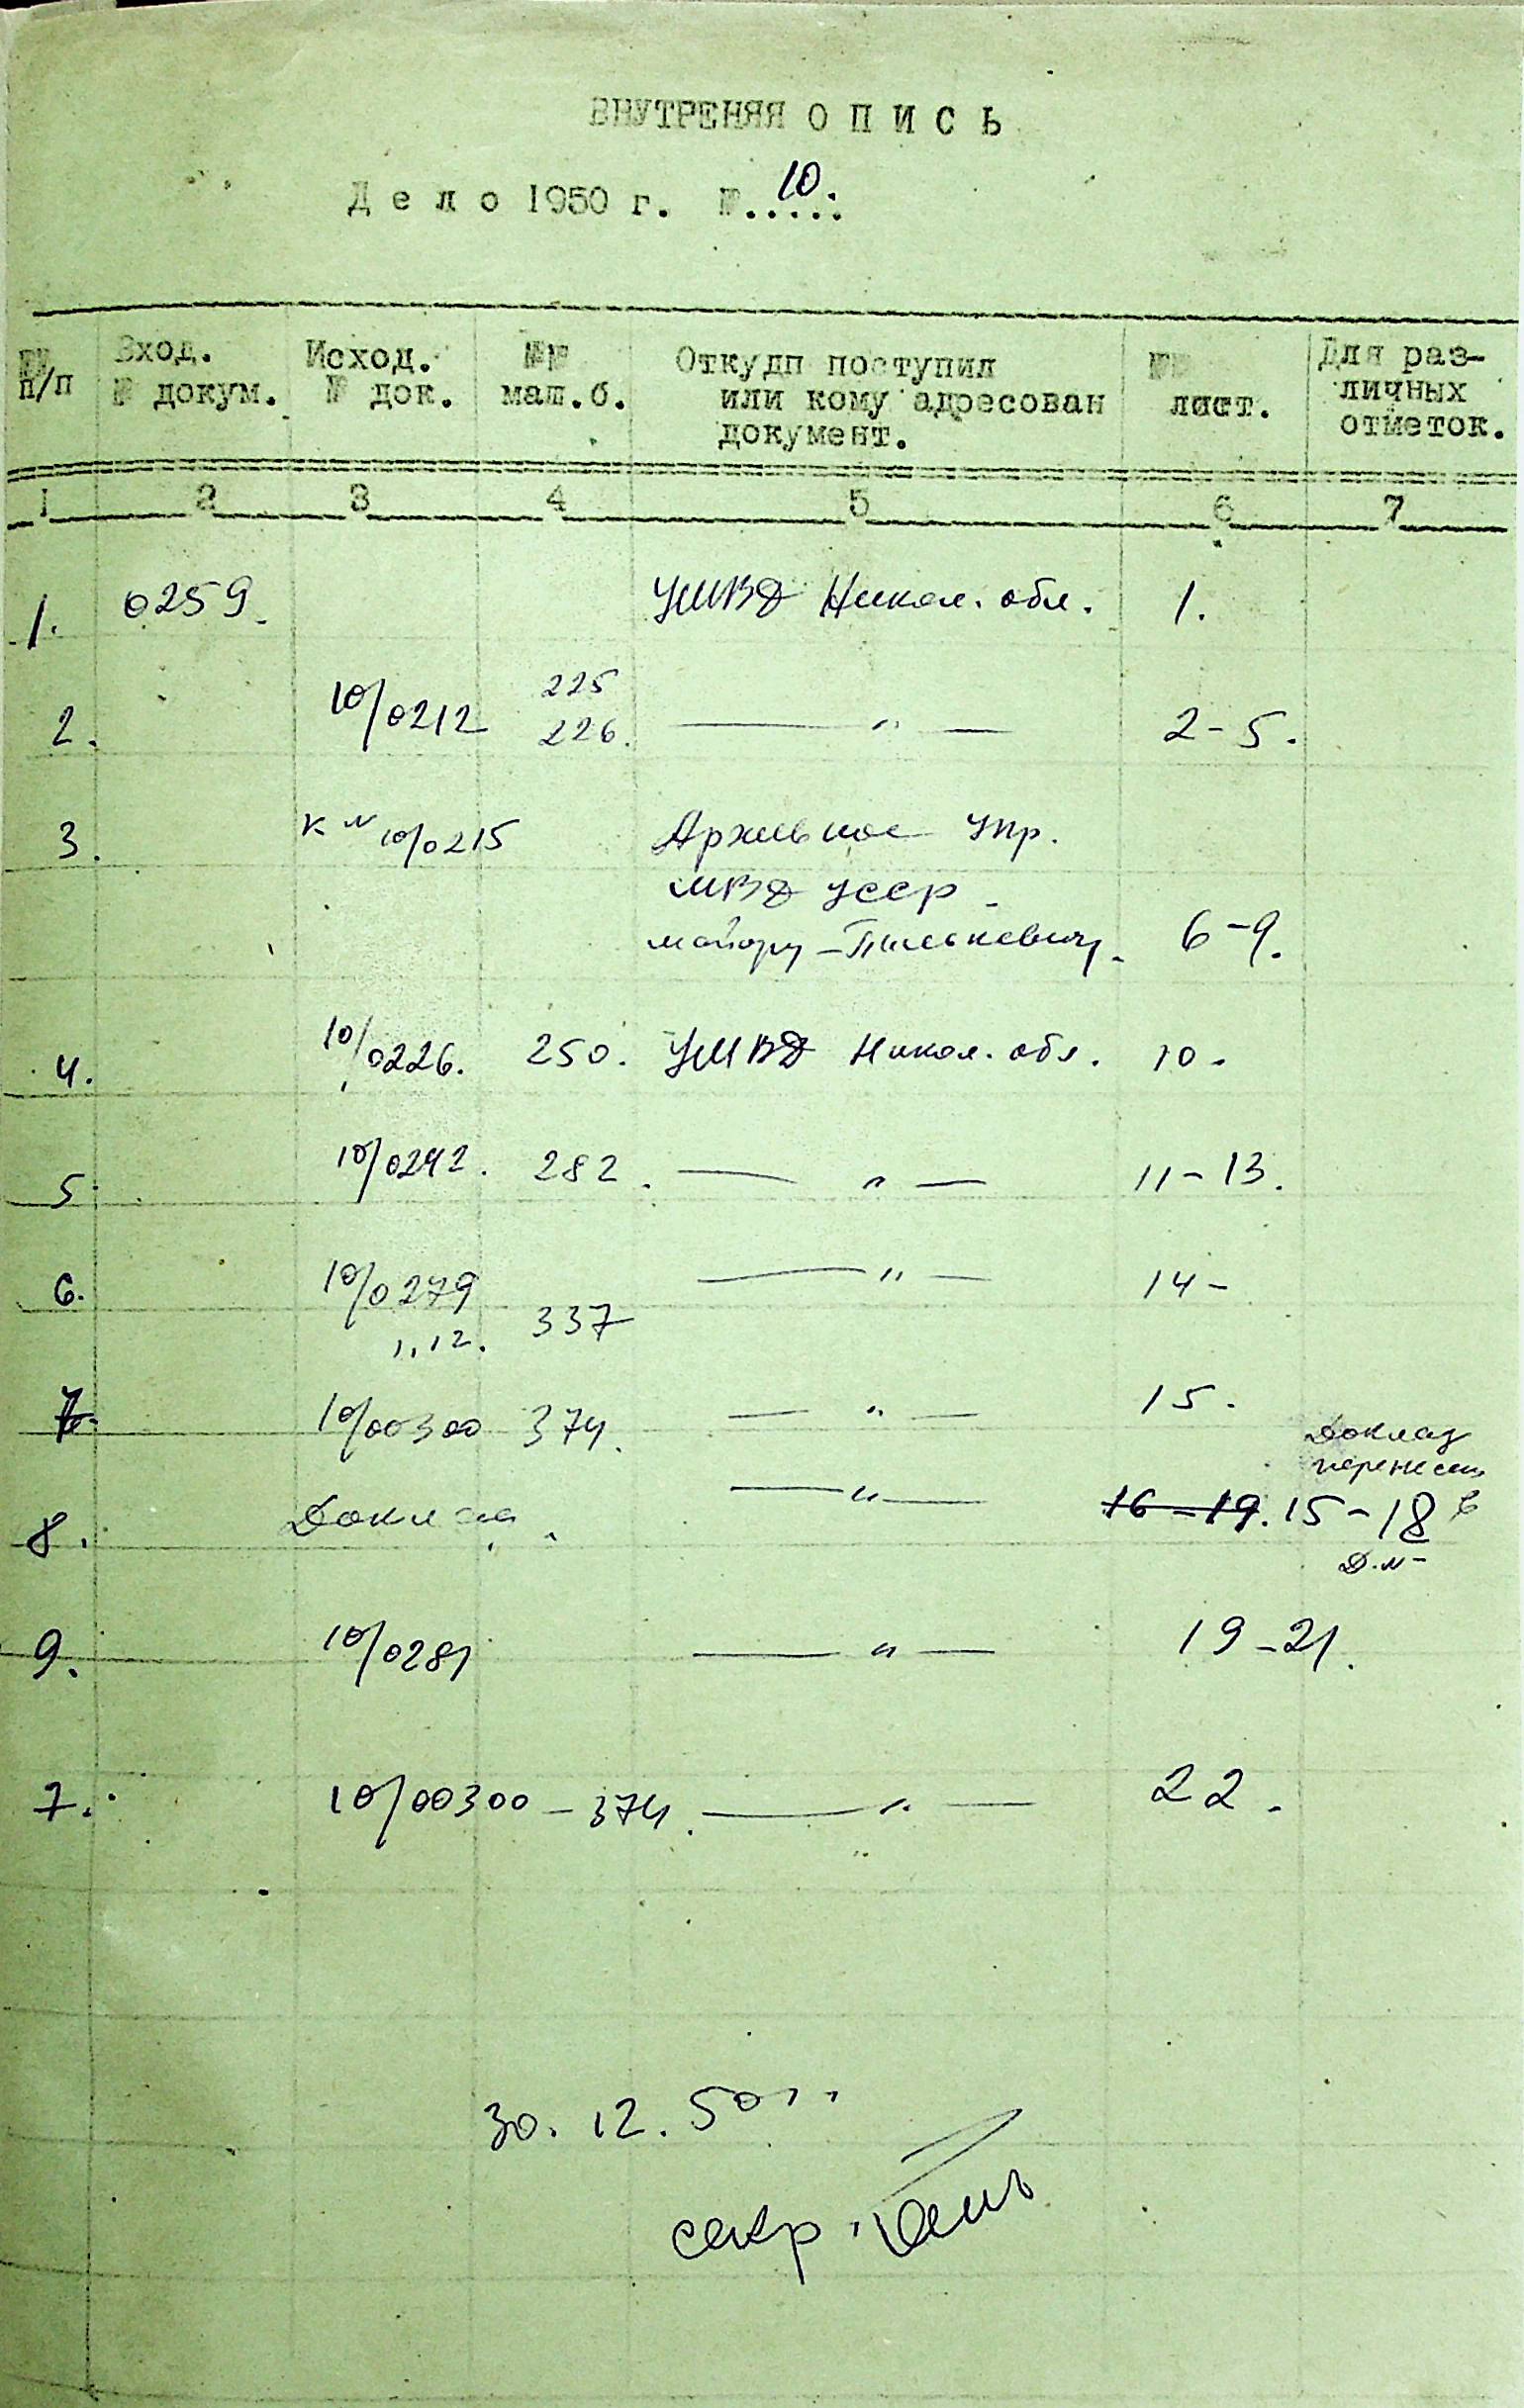 ВНУТРЕНЯЯ О П И С Ь
Д е л о 1950 г. №..10...
№№ п/п Вход. № докум. Исход. № док. №№ маш.б. Откудп поступил или кому адресован документ. №№ лист. Для раз-личных отметок.
1 2 3 4 5 6 7
1. 0259. УМВД Никол. обл. 1.
2. 10/0212 225 226. — " — 2-5.
3. к № 10/0215 Архивное Упр.
МВД УССР
майору - 6-9.
4. 10/0226. 250. УМВД Никол. обл. 10.
5. 10/0242. 282. — " — 11-13.
6. 10/0279 337 — " — 14-
1.12.
7. 10/00300 374. — " — 15.
Доклад
перенесен
8. Доклад. — " — 16-19. 15-18 в
Д.№-
9. 10/0281 — " — 19-21.
7. 10/00300-374. — " — 22.
30. 12. 50 г.
секр.